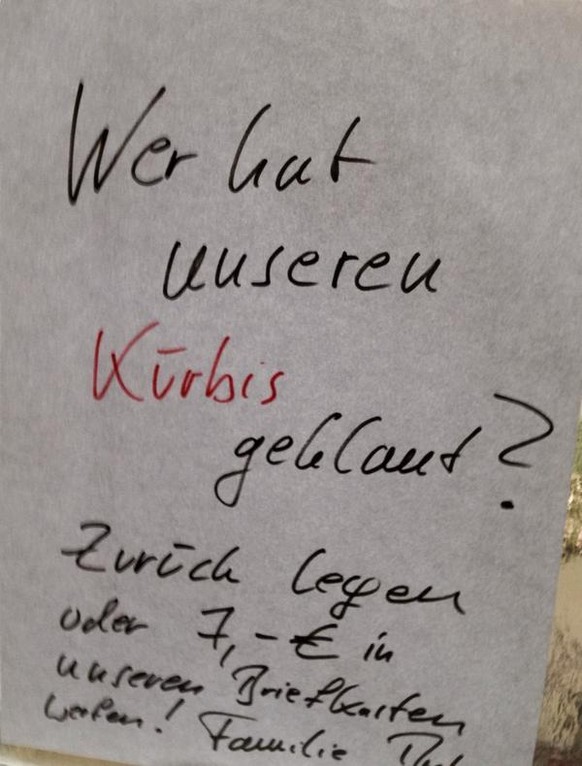 Wer hat
unseren
Kürbis
geklaut?
Zurück legen
oder 7,-€ in
unseren Briefkasten
werfen! Familie